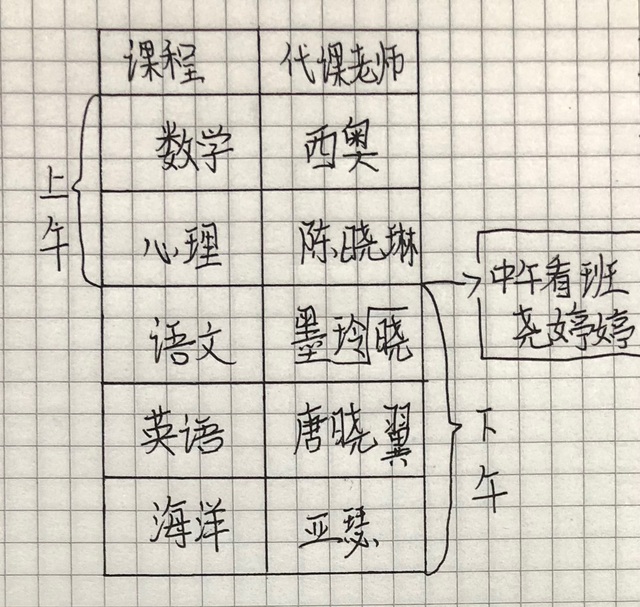 课程 代课老师
数学 西奥
上午
心理 陈晓琳
中午看班
尧婷婷
语文 墨玲晓
英语 唐晓翼
下午
海洋 亚瑟